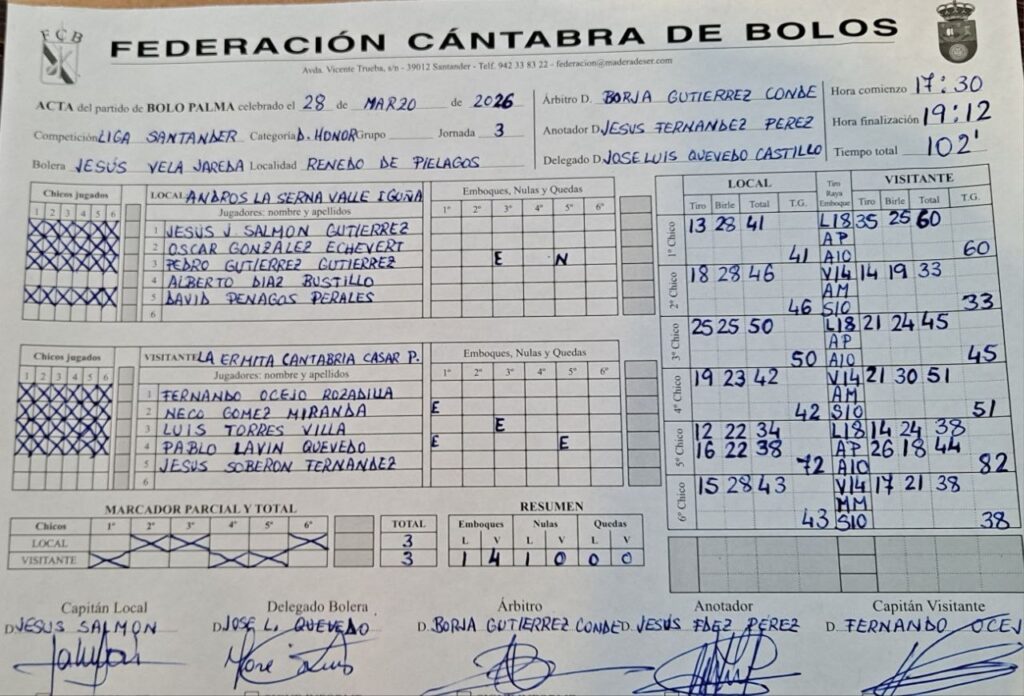 FCB
FEDERACIÓN CÁNTABRA DE BOLOS
Avda. Vicente Trueba, s/n - 39012 Santander - Telf. 942 33 83 22 - federacion@maderadeser.com
ACTA del partido de BOLO PALMA celebrado el 28 de MARZO de 2026
Competición LIGA SANTANDER Categoría D. HONOR Grupo Jornada 3
Bolera JESÚS VELA JAREDA Localidad RENEDO DE PIELAGOS
Árbitro D. BORJA GUTIERREZ CONDE
Anotador D. JESUS FERNANDEZ PEREZ
Delegado D. JOSE LUIS QUEVEDO CASTILLO
Hora comienzo 17:30
Hora finalización 19:12
Tiempo total 102'
Chicos jugados
1 2 3 4 5 6
LOCAL: ANDROS LA SERNA VALLE IGUÑA
Jugadores: nombre y apellidos
Emboques, Nulas y Quedas
1º 2º 3º 4º 5º 6º
1 JESUS J SALMON GUTIERREZ
2 OSCAR GONZALEZ ECHEVERT
3 PEDRO GUTIERREZ GUTIERREZ E N
4 ALBERTO DIAZ BUSTILLO
5 DAVID PENAGOS PERALES
6
Chicos jugados
1 2 3 4 5 6
VISITANTE LA ERMITA CANTABRIA CASAR P.
Jugadores: nombre y apellidos
Emboques, Nulas y Quedas
1º 2º 3º 4º 5º 6º
1 FERNANDO OCEJO ROZADILLA
2 NECO GOMEZ MIRANDA E
3 LUIS TORRES VILLA E
4 PABLO LAVIN QUEVEDO E E
5 JESUS SOBERON FERNANDEZ
6
LOCAL Tiro Raya Emboque VISITANTE
Tiro Birle Total T.G. Tiro Birle Total T.G.
1º Chico 13 28 41 L18 35 25 60
AP
41 A10 60
2º Chico 18 28 46 V14 14 19 33
AM
46 S10 33
3º Chico 25 25 50 L18 21 24 45
AP
50 A10 45
4º Chico 19 23 42 V14 21 30 51
AM
42 S10 51
5º Chico 12 22 34 L18 14 24 38
16 22 38 AP 26 18 44
72 A10 82
6º Chico 15 28 43 V14 17 21 38
MM
43 S10 38
MARCADOR PARCIAL Y TOTAL
Chicos 1º 2º 3º 4º 5º 6º TOTAL
LOCAL 3
VISITANTE 3
RESUMEN
Emboques Nulas Quedas
L V L V L V
1 4 1 0 0 0
Capitán Local Delegado Bolera Árbitro Anotador Capitán Visitante
D. JESUS SALMON D. JOSE L. QUEVEDO D. BORJA GUTIERREZ CONDE D. JESUS FDEZ PEREZ D. FERNANDO OCEJ